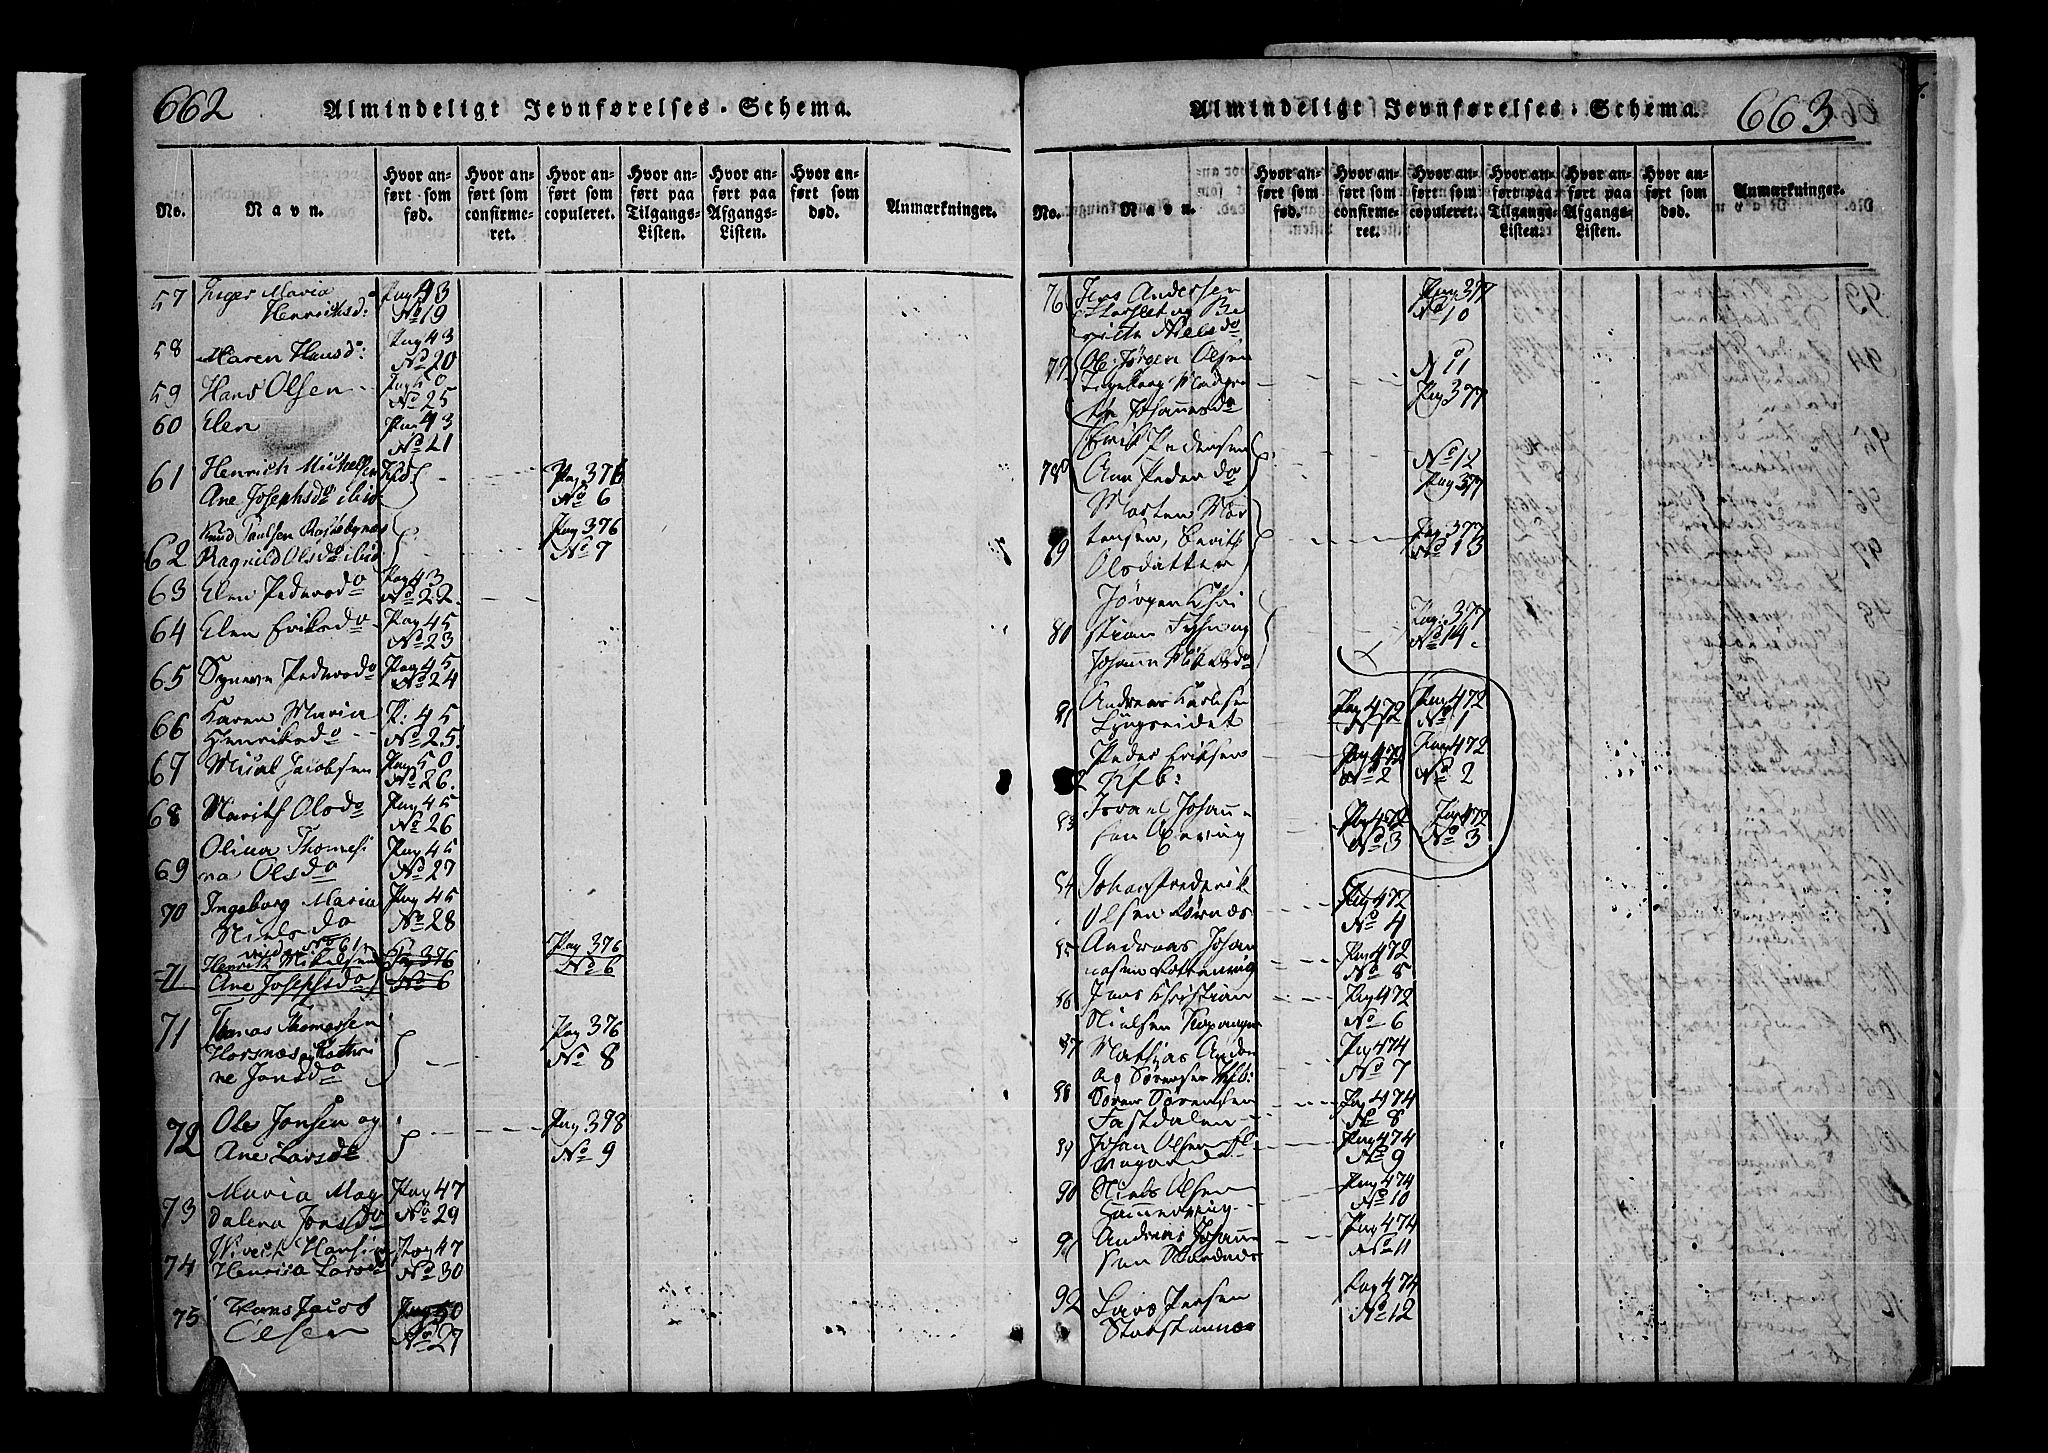 662 Almindeligt Jevnførelses-Schema.
No. Navn. Hvor anført som fød. Hvor anført som confirmeret. Hvor anført som copuleret. Hvor anført paa Tilgangs-Listen. Hvor anført paa Afgangs-Listen. Hvor anført som død. Anmærkninger.
57 Inger Maria Pag 43
Henrichsd: No 19
58 Maren Hansd: Pag 43
No 20
59 Hans Olsen Pag 50
No 25
60 Elen Pag 43
No 21
61 Henrich Mickelsen Pag 376
Ane Josephsd ibid No 6
62 Knud Paulsen Pag 376
Ragnild Olsd ibid No 7
63 Elen Pedersd Pag 43
No 22
64 Elen Eriksd Pag 45
No 23
65 Synneve Pedersd Pag 45
No 24
66 Karen Maria P: 45
Henriksd No 25
67 Jacobsen Pag 50
No 26
68 Marith Olsd Pag 45
No 26
69 Olina Thomesi Pag 45
na Olsd No 27
70 Ingeborg Maria Pag 45
Nielsd No 28
vider No 61
71 Henrik Mikelsen Pag 376 Pag 376
Ane Josephsd No 6 No 6
71 Thomas Thomassen Pag 376
Horsnæs og Kathri No 8
ne Jonsd
72 Ole Jonsen og Pag 378
Ane Larsd No 9
73 Maria Mag Pag 47
dalena Jonsd No 29
74 Hansin Pag 47
Henrica Larsd No 30
75 Hans Jacob Pag 50
Olsen No 27
Almindeligt Jevnførelses-Schema. 663
No. Navn. Hvor anført som fød. Hvor anført som confirmeret. Hvor anført som copuleret. Hvor anført paa Tilgangs-Listen. Hvor anført paa Afgangs-Listen. Hvor anført som død. Anmærkninger.
76 Jens Andersen Pag 377
og Be No 10
rith Nielsd
77 Ole Jørgen Olsen No 11
Ingeborg Margre Pag 377
the Johannesd
Erik Pedersen No 12
78 Ane Pedersd Pag 377
Morten Mor
79 tensen, Berith Pag 377
Olsdatter No 13
Jørgen Chri
80 stian og Pag 377
Johanna No 14
81 Andreas Karlsen Pag 472 Pag 472
Lyngseidet No 1 No 1
Peder Eriksen Pag 472 Pag 472
82 Kfb: No 2 No 2
83 Israel Johann Pag 472 Pag 472
sen No 3 No 3
84 Johan Frederik Pag 472
Olsen No 4
85 Andreas Johan Pag 472
nesen Rottenvig No 5
86 Jens Christian Pag 472
Nielsen No 6
87 Mathias Andre Pag 474
as Sørensen Kfb: No 7
88 Søren Sørensen Pag 474
Fastdalen No 8
89 Johan Olsen Pag 474
No 9
90 Niels Olsen Pag 474
Hamnevig No 10
91 Andreas Johann Pag 474
sen No 11
92 Lars Persen Pag 474
No 12